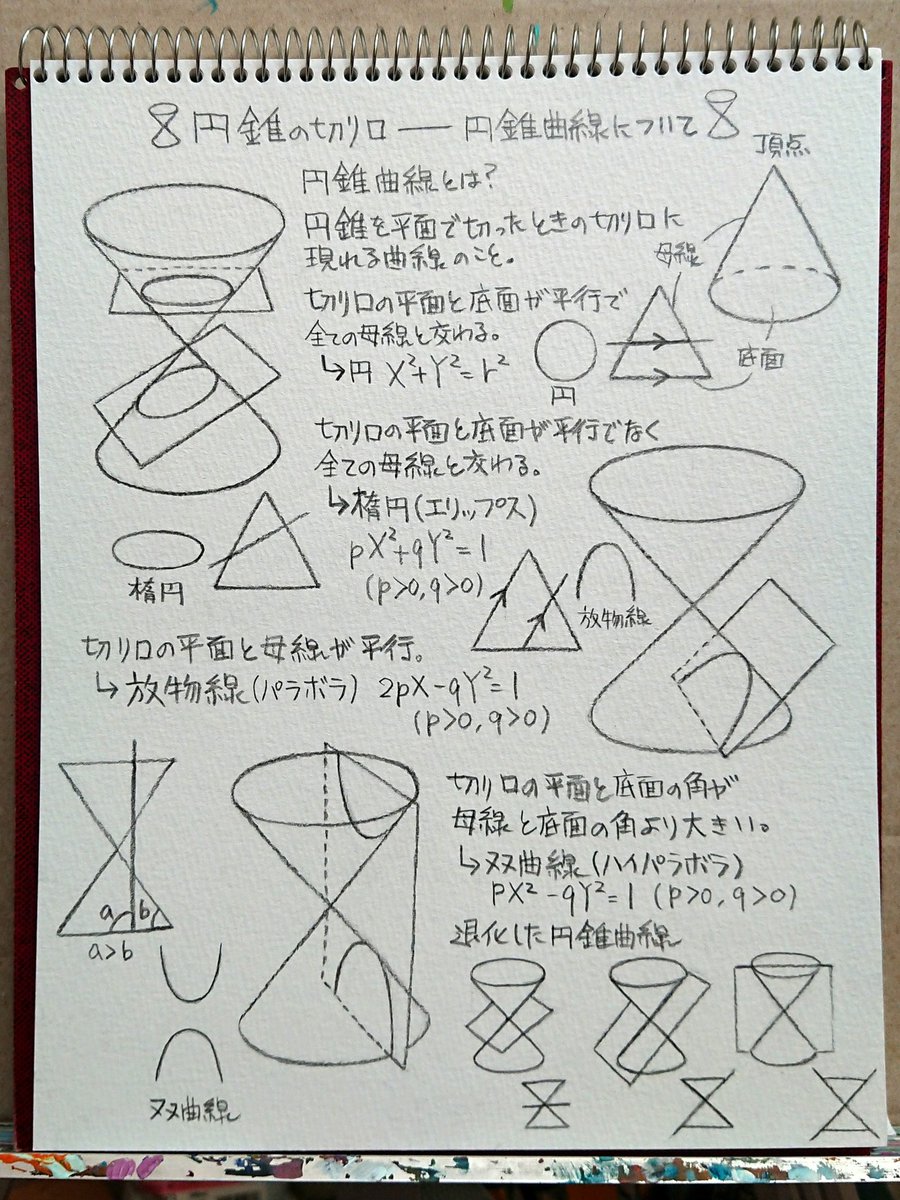 円錐の切り口 — 円錐曲線について
頂点
円錐曲線とは?
円錐を平面で切ったときの切り口に
現れる曲線のこと。
母線
切り口の平面と底面が平行で
全ての母線と交わる。
↳円 X²+Y²=r²
円
底面
切り口の平面と底面が平行でなく
全ての母線と交わる。
↳楕円(エリップス)
pX²+qY²=1
(p>0,q>0)
楕円
放物線
切り口の平面と母線が平行。
↳放物線(パラボラ) 2pX-qY²=1
(p>0,q>0)
切り口の平面と底面の角が
母線と底面の角より大きい。
↳双曲線(ハイパラボラ)
pX²-qY²=1 (p>0,q>0)
a b
a>b
双曲線
退化した円錐曲線